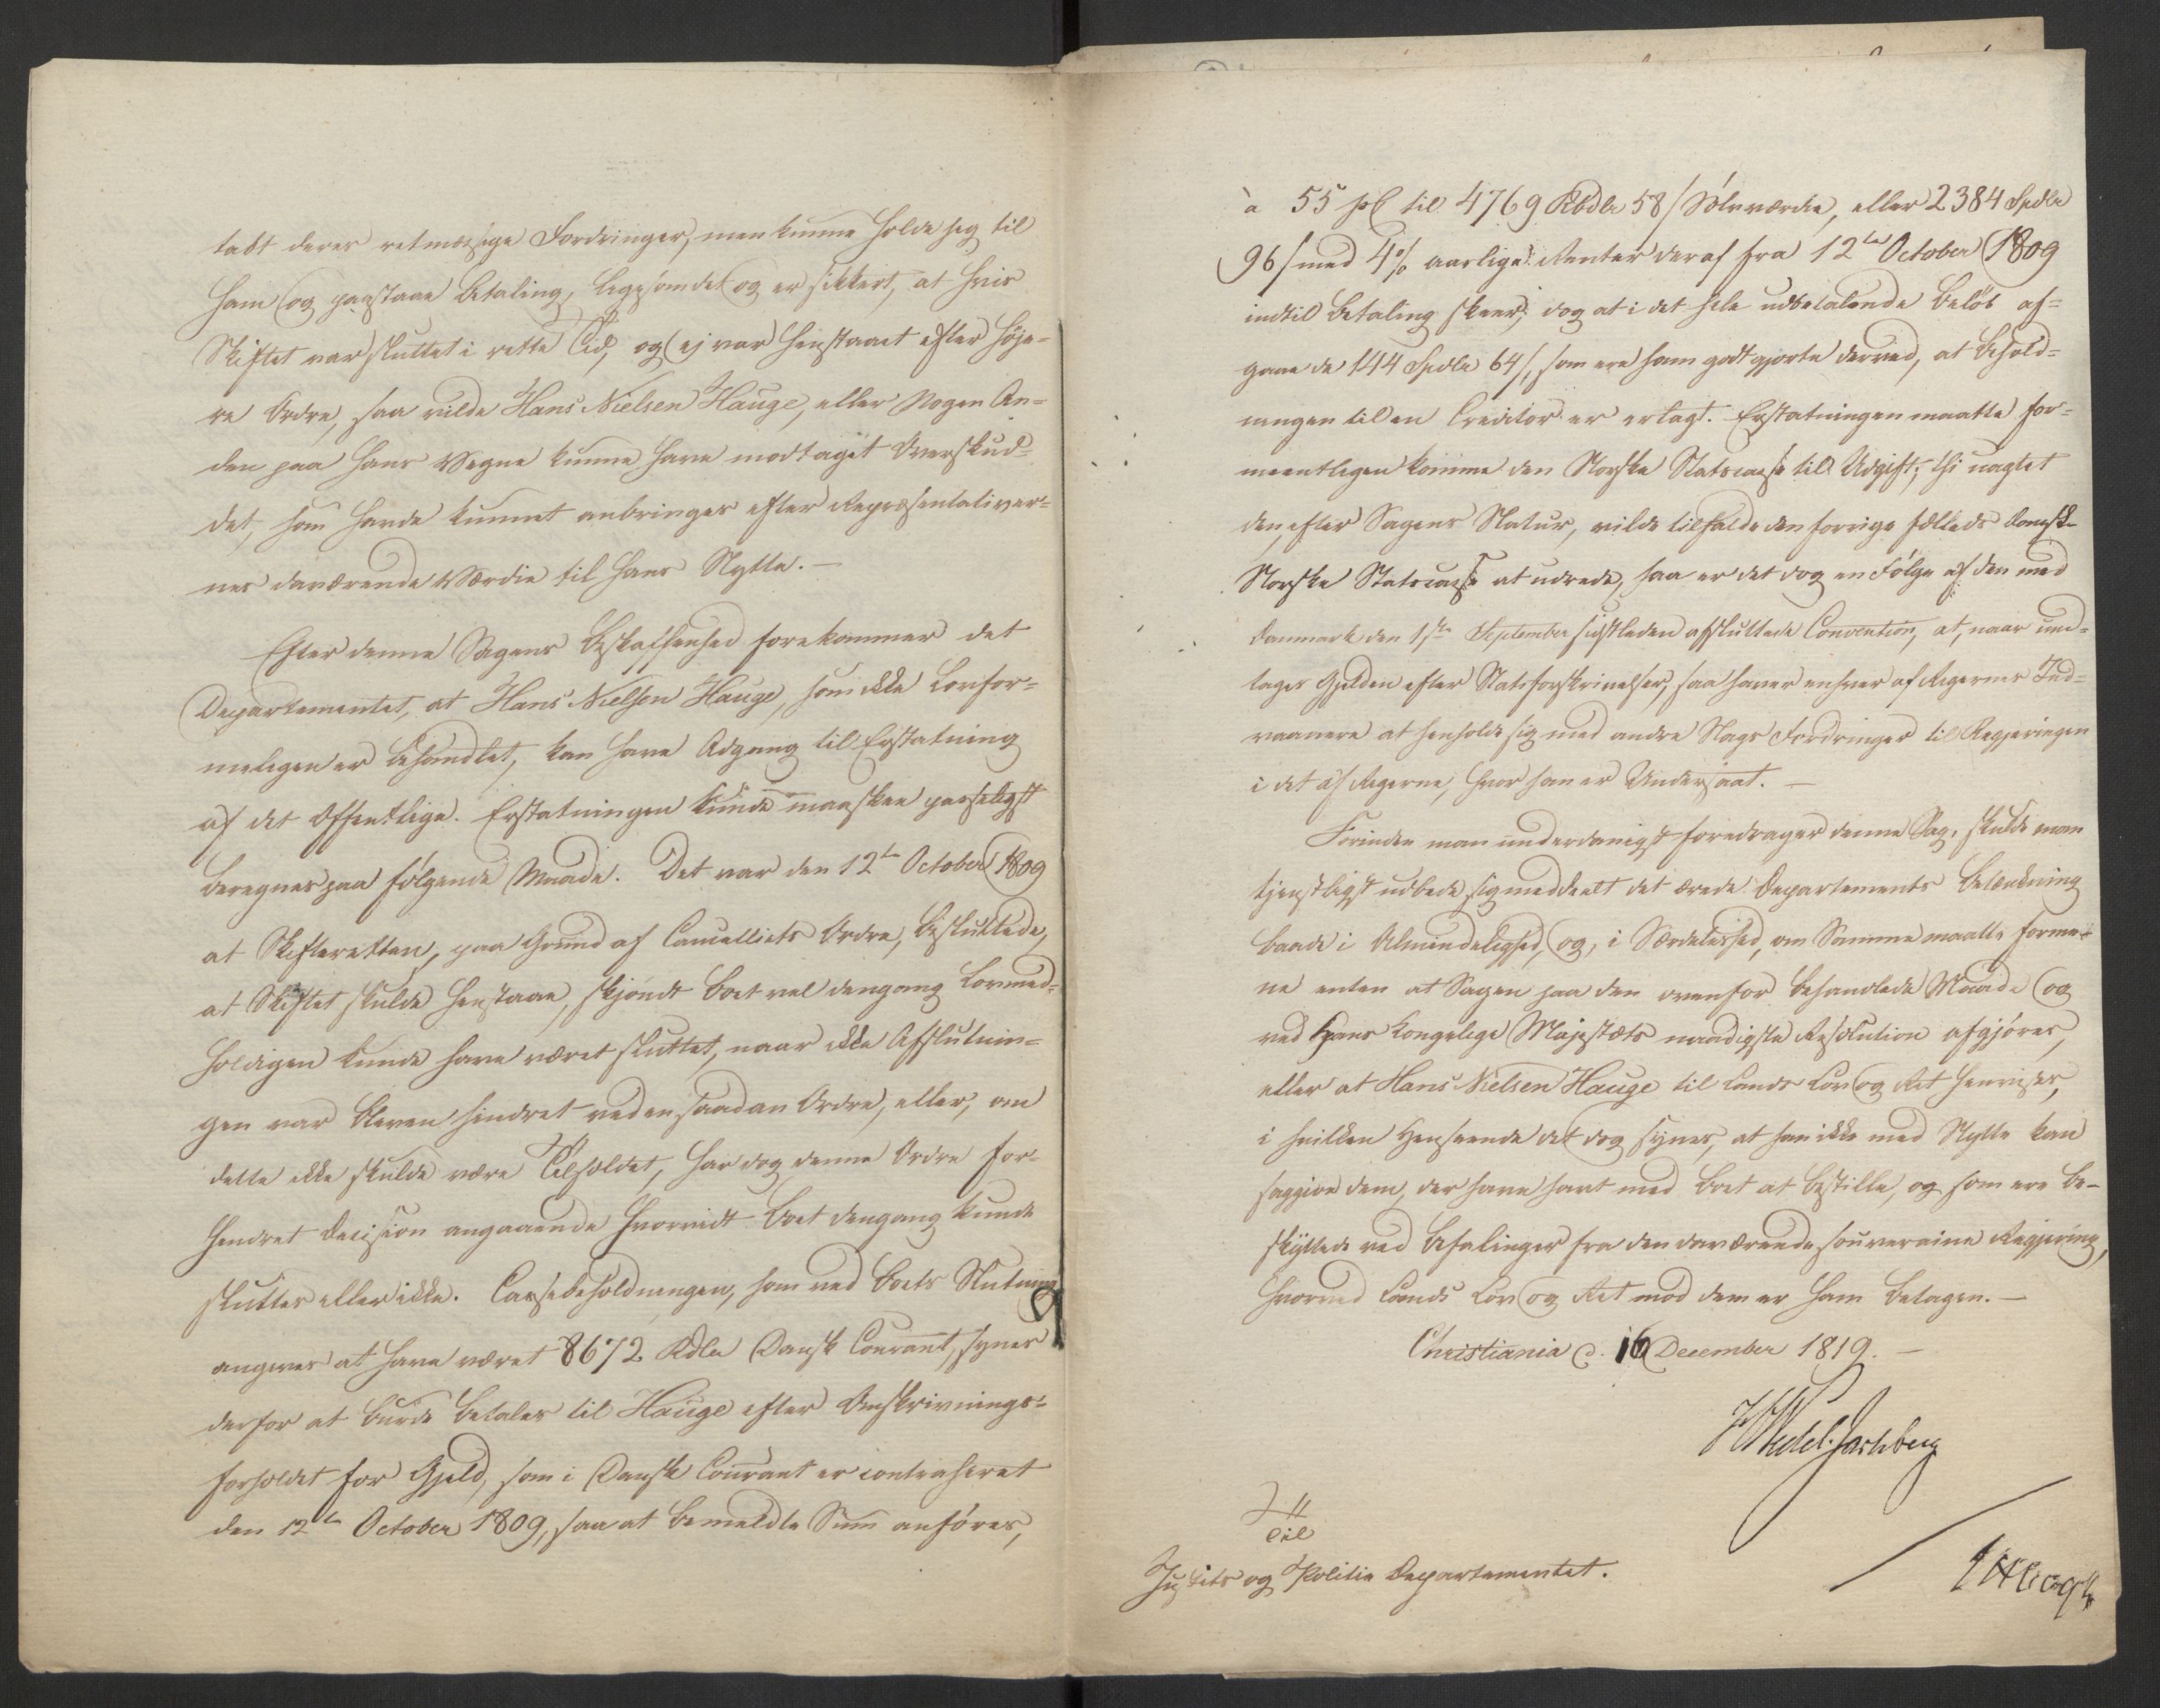 tabt deres retmæssige Fordringer, men kunne holde sig til
ham og paastaae Betaling, ligesom det og er sikkert, at hvis
Skiftet var sluttet i rette Tid, og ej var henstaaet efter høje-
re Ordre, saa vilde Hans Nielsen Hauge, eller Nogen An-
den paa hans Vegne kunne have modtaget Overskud-
det, som havde kunnet anbringes efter Repræsentativer-
nes daværende Værdie til hans Nytte. —
Efter denne Sagens Beskaffenhed forekommer det
Departementet, at Hans Nielsen Hauge, som ikke Lovfor-
meligen er behandlet, kan have Adgang til Erstatning
af det Offentlige. Erstatningen kunde maaskee passeligst
beregnes paa følgende Maade. Det var den 12te October 1809
at Skifteretten, paa Grund af Cancelliets Ordre, besluttede,
at Skiftet skulde henstaae, skjøndt Boet vel dengang Lovmed-
holdigen kunde have været sluttet, naar ikke Afslutnin-
gen var bleven hindret ved en saadan Ordre, eller, om
dette ikke skulde være Tilfældet, har dog denne Ordre for-
hindret Decision angaaende hvorvidt Boet dengang kunde
sluttes eller ikke. Cassebeholdningen, som ved Boets Slutning
angives at have været 8672 Rdlr Dansk Courant, synes
derfor at burde betales til Hauge efter Omskrivnings-
forholdet for Gjeld, som i Dansk Courant er contraheret
den 12te October 1809, saa at bemeldte Sum anføres,
à 55 pC til 4769 Rbdlr 58 s Sølvværdie, eller 2384 Spdlr
96 s med 4% aarlige Renter deraf fra 12te October 1809
indtil Betaling skeer, dog at i det hele udbetalende Beløb af-
gaae de 144 Spdlr 64 s, som ere ham godtgjorte derved, at Behold-
ningen til en Creditor er erlagt. Erstatningen maatte for-
meentligen komme den Norske Statscasse til Udgift; thi uagtet
den, efter Sagens Natur, vilde tilfalde den forrige fælleds Dansk-
Norske Statscasse at udrede, saa er det dog en Følge af den med
Danmark den 1ste September sidstleden afsluttede Convention, at, naar und-
tages Gjelden efter Statsforskrivelser, saa haver enhver af Rigernes Ind-
vaanere at henholde sig med andre Slags Fordringer til Regjeringen
i det af Rigerne, hvor han er Undersaat. —
Forinden man underdanigst foredrager denne Sag, skulde man
tjenstligst udbede sig meddeelt det ærede Departements Betænkning
baade i Almindelighed, og, i Særdeleshed, om Samme maatte forme-
ne enten at Sagen paa den ovenfor behandlede Maade og
ved Hans Kongelige Majestæts naadigste Resolution afgjøres,
eller at Hans Nielsen Hauge til Lands Lov og Ret henvises,
i hvilken Henseende det dog synes, at han ikke med Nytte kan
saggive dem, der have havt med Boet at bestille, og som ere be-
skyttede ved Befalinger fra den daværende souveraine Regjering,
hvorved Lands Lov og Ret mod dem er ham betagen. —
Christiania d. 16 December 1819. —
HWedel Jarlsberg
Til
Justits og Politie Departementet.